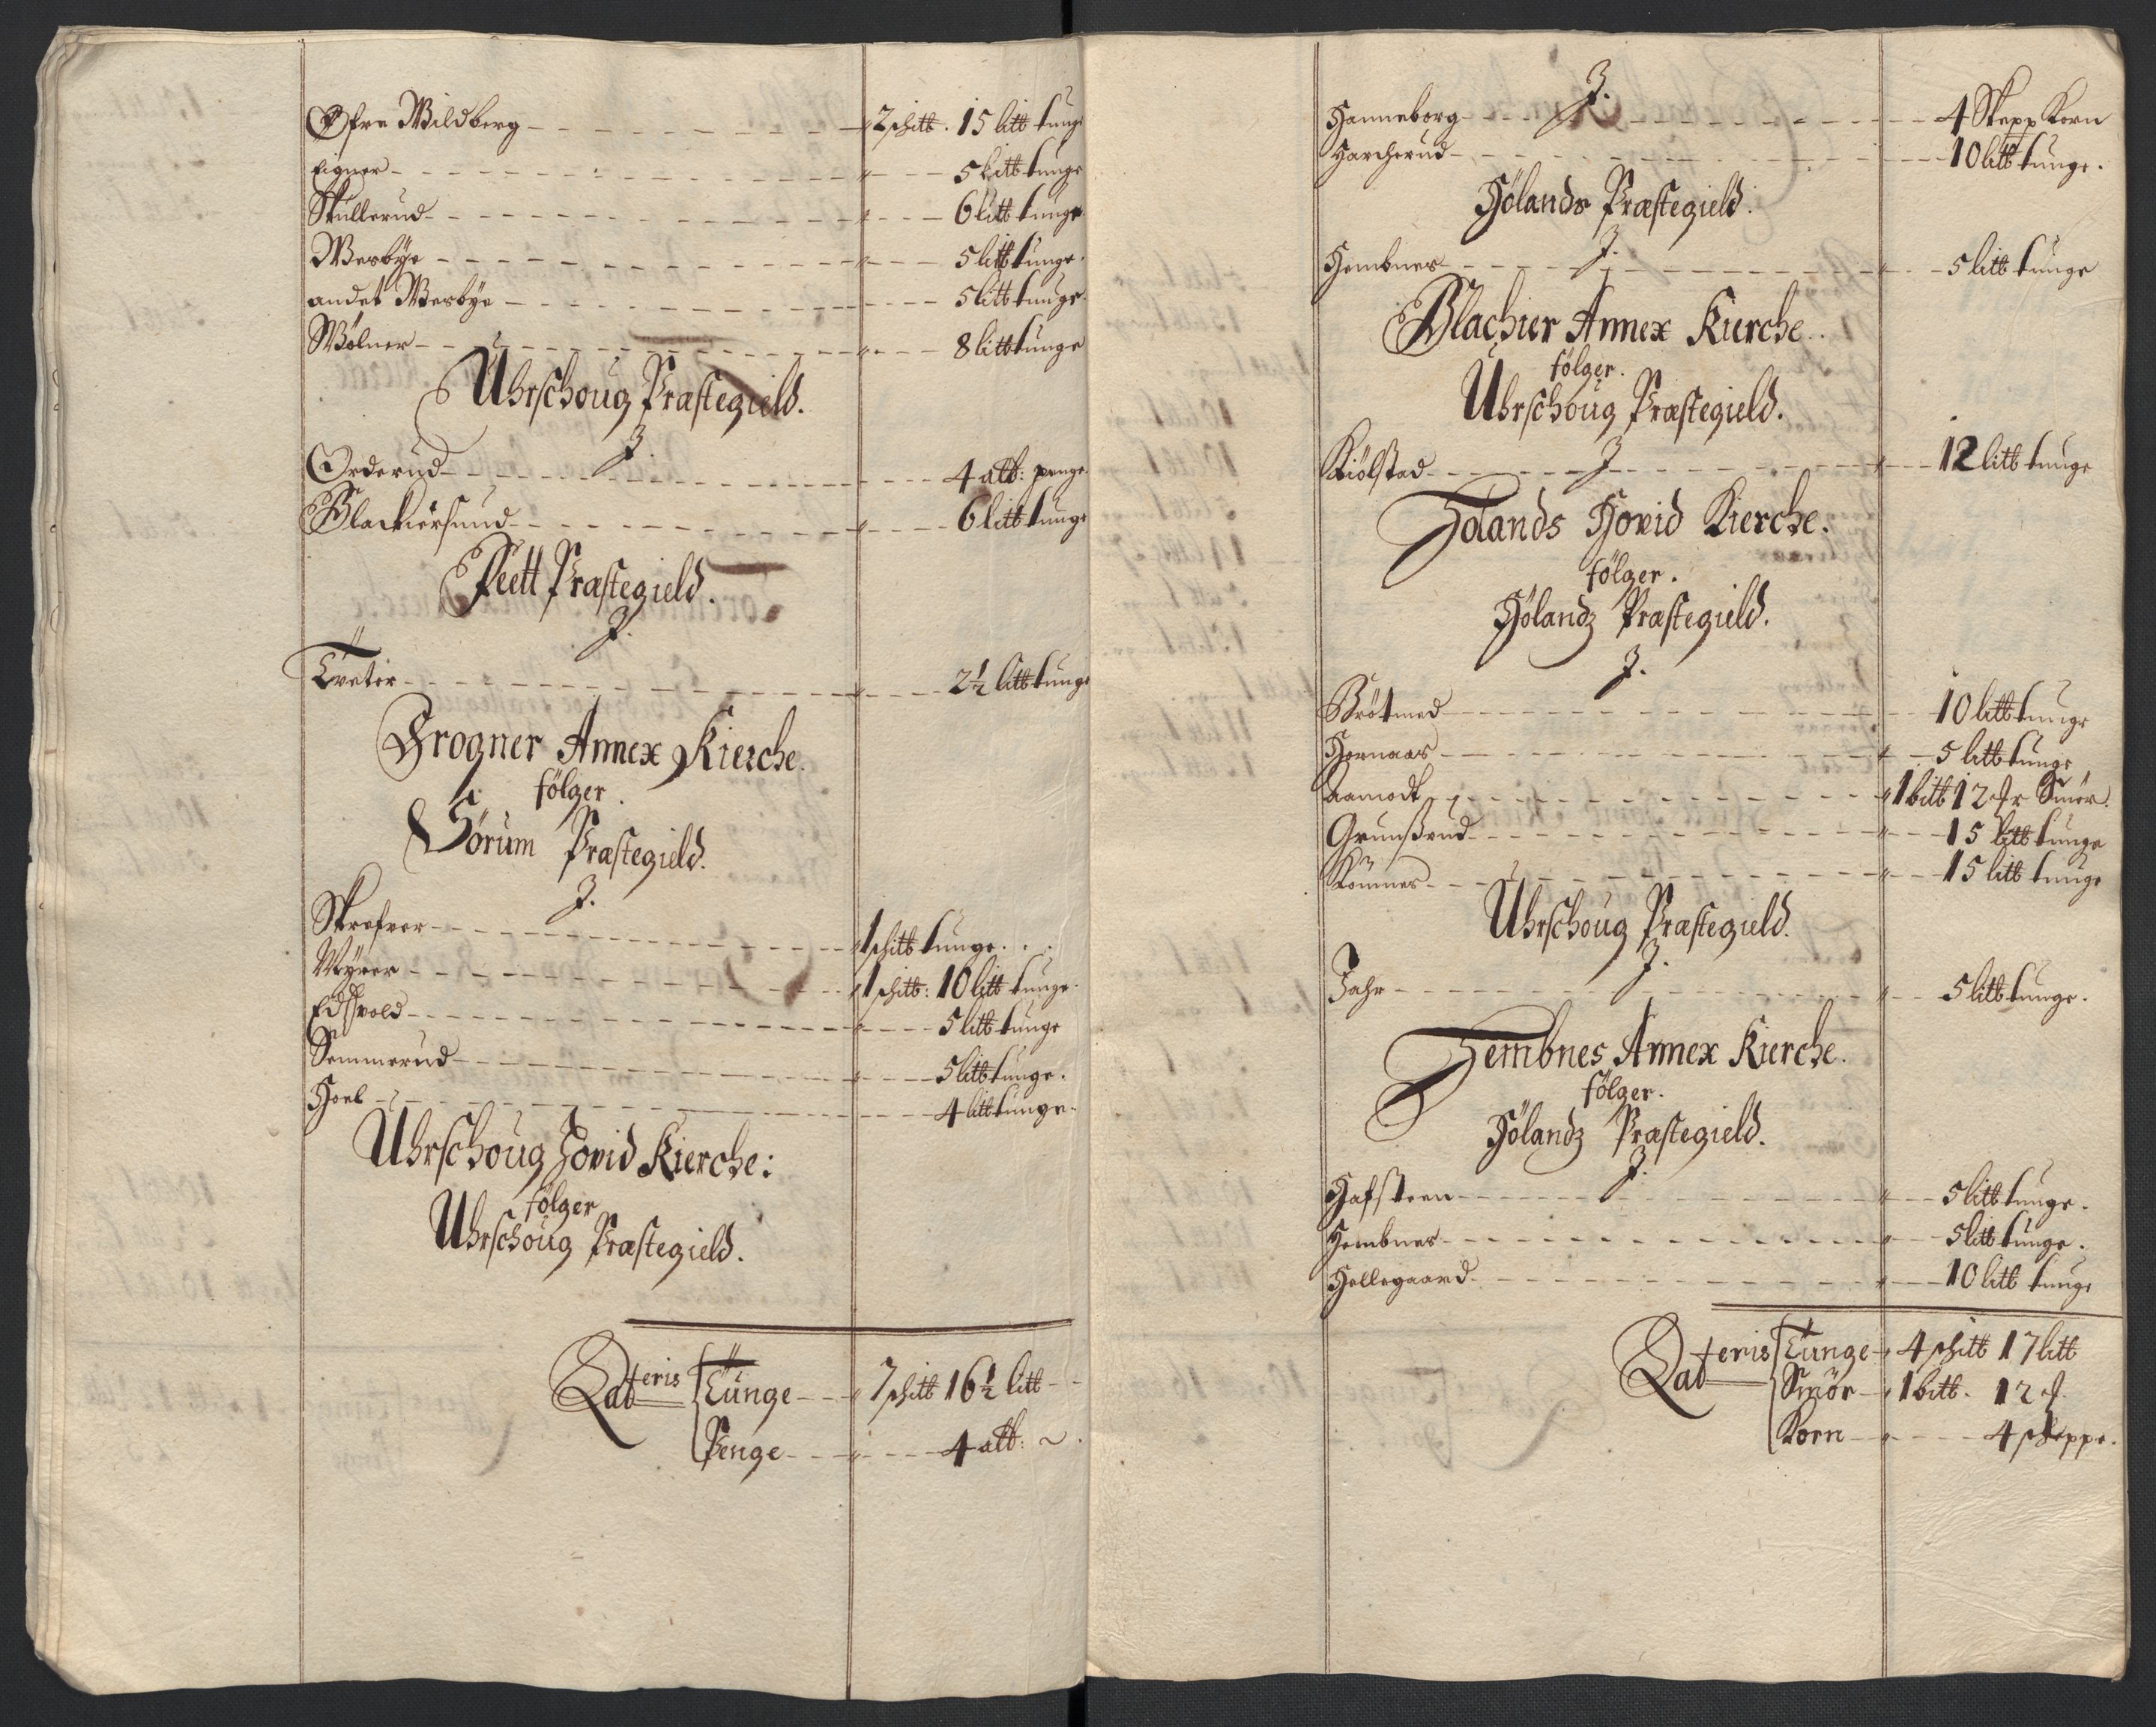 Øfre Wildberg - - - 2 schtt. 15 litt tunge
Eigner - - - 5 litt tunge
Skullerud - - - 6 litt tunge
Wesbÿe - - - 5 litt tunge.
andet Wesbÿe - - - 5 litt tunge
Wølner - - - 8 litt tunge
Uhrschoug Præstegield.
J.
Orderud - - - 4 alb: penge
Blackiersund - - - 6 litt tunge
Feett Præstegield.
J.
Tveter - - - 2½ litt tunge
Frogner Annex Kierche.
følger.
Sørum Præstegield.
J.
Skrefver - - - 1 schitt tunge.
Mÿrer - - - 1 schitt: 10 litt tunge.
Edsvold - - - 5 litt tunge
Semmerud - - - 5 litt tunge.
Hoel - - - 4 litt tunge.
Uhrschoug Hovid Kierche:
følger
Uhrschoug Præstegield.
Lateris Tunge - - - 7 schitt 16½ litt
Penge - - - 4 alb:
J.
Hanneborg - - - 4 Skepp Korn
Harcherud - - - 10 litt tunge.
Hølands Præstegield.
J.
Hembnes - - - 5 litt tunge
Blachier Annex Kierche.
følger.
Uhrschoug Præstegield.
J
Kiølstad - - - 12 litt tunge
Holands Hovid Kierche.
følger.
Hølandz Præstegield.
J.
Brøtmed - - - 10 litt tunge
Hornaas - - - 5 litt tunge
Aamodt - - - 1 bitt 12 Smør.
Grunßrud - - - 15 litt tunge
Rømnes - - - 15 litt tunge
Uhrschoug Præstegield.
J.
Jahr - - - 5 litt tunge.
Hembnes Annex Kierche.
følger.
Hølandz Præstegield.
J.
Hafsteen - - - 5 litt tunge.
Hembnes - - - 5 litt tunge.
Hellegaard - - - 10 litt tunge
Lateris Tunge - 4 schitt 17 litt
Smør - 1 bitt. 12
Korn - - - 4 skeppe.